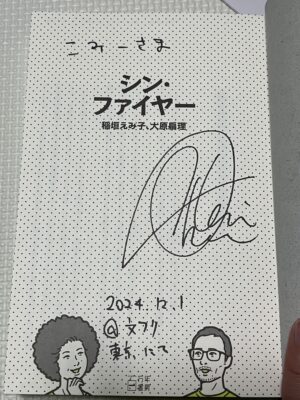 こみーさま
シン・
ファイヤー
稲垣えみ子、大原扁理
2024.12.1
@文フリ
東京にて
百年
書房